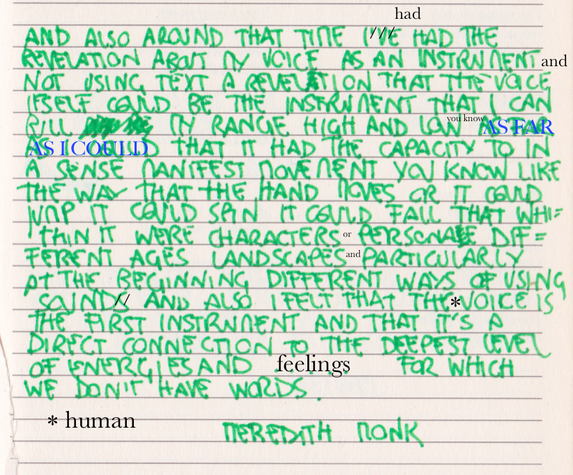 had
AND ALSO AROUND THAT TIME I'VE HAD THE
REVELATION ABOUT MY VOICE AS AN INSTRUMENT and
NOT USING TEXT A REVELATION THAT THE VOICE
ITSELF COULD BE THE INSTRUMENT THAT I CAN
MY RANGE HIGH AND LOW you know AS FAR
AS I COULD THAT IT HAD THE CAPACITY TO IN
A SENSE MANIFEST MOVEMENT YOU KNOW LIKE
THE WAY THAT THE HAND MOVES OR IT COULD
JUMP IT COULD SPIN IT COULD FALL THAT WHI=
THIN IT WERE CHARACTERS or PERSONAE DIF=
FERENT AGES LANDSCAPES and PARTICULARLY
AT THE BEGINNING DIFFERENT WAYS OF USING
SOUNDS AND ALSO I FELT THAT THE * VOICE IS
THE FIRST INSTRUMENT AND THAT IT'S A
DIRECT CONNECTION TO THE DEEPEST LEVEL
OF ENERGIES AND feelings FOR WHICH
WE DON'T HAVE WORDS.
* human
MEREDITH MONK